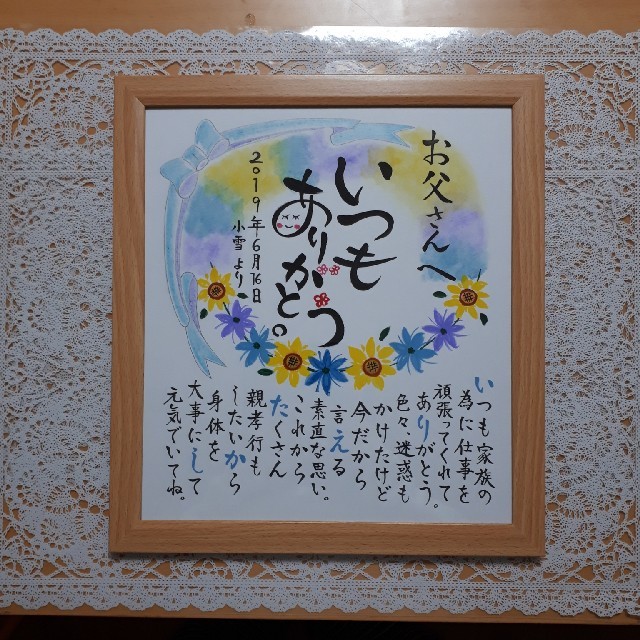 お父さんへ
いつも
ありがとう。
2019年6月16日
小雪より
いつも家族の
為に仕事を
頑張ってくれて
ありがとう。
色々迷惑も
かけたけど
今だから
言える
素直な思い。
これから
たくさん
親孝行も
したいから
身体を
大事にして
元気でいてね。